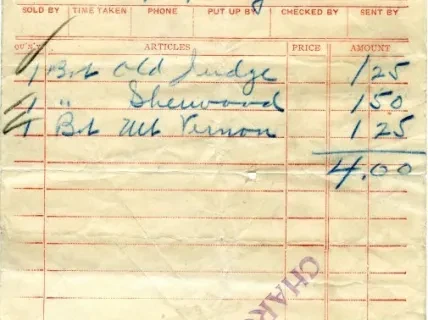 SOLD BY TIME TAKEN PHONE PUT UP BY CHECKED BY SENT BY
QU'N'Y ARTICLES PRICE AMOUNT
1 Bot Old Judge 1 25
1 " Sherwood 1 50
1 Bot Mt Vernon 1 25
4.00
CHAR